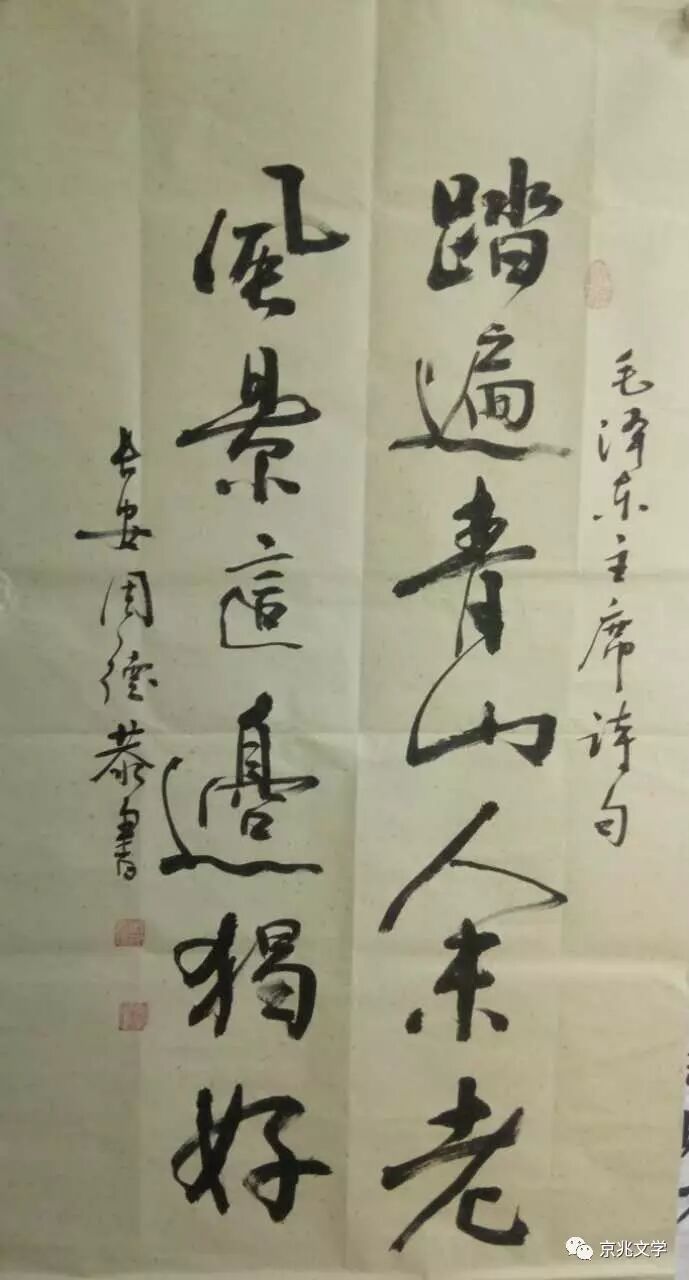 毛泽东主席诗句
踏遍青山人未老
風景這邊獨好
长安周德恭書
京兆文学